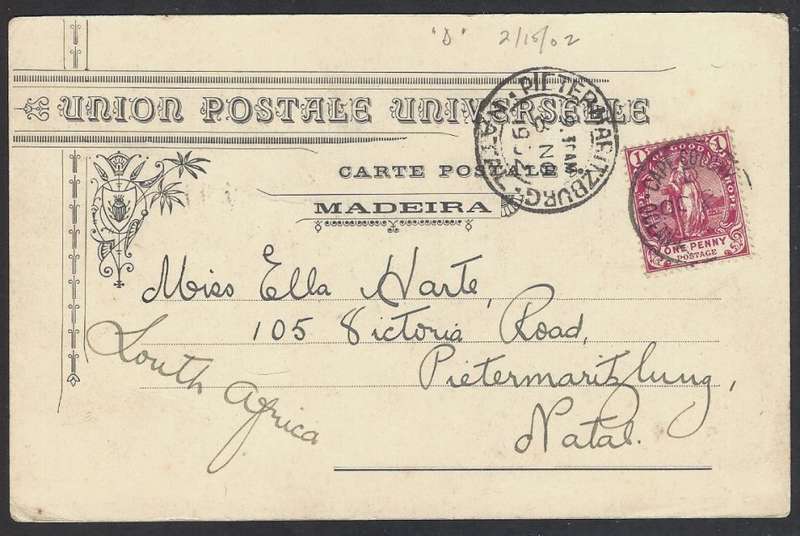 "D" 2/15/02
UNION POSTALE UNIVERSELLE
CARTE POSTALE
MADEIRA
PIETERMARITZBURG NATAL
JAN
1 1
GOOD HOPE
ONE PENNY
POSTAGE
Miss Ella Harte,
105 Victoria Road,
Pietermaritzburg,
Natal.
South Africa